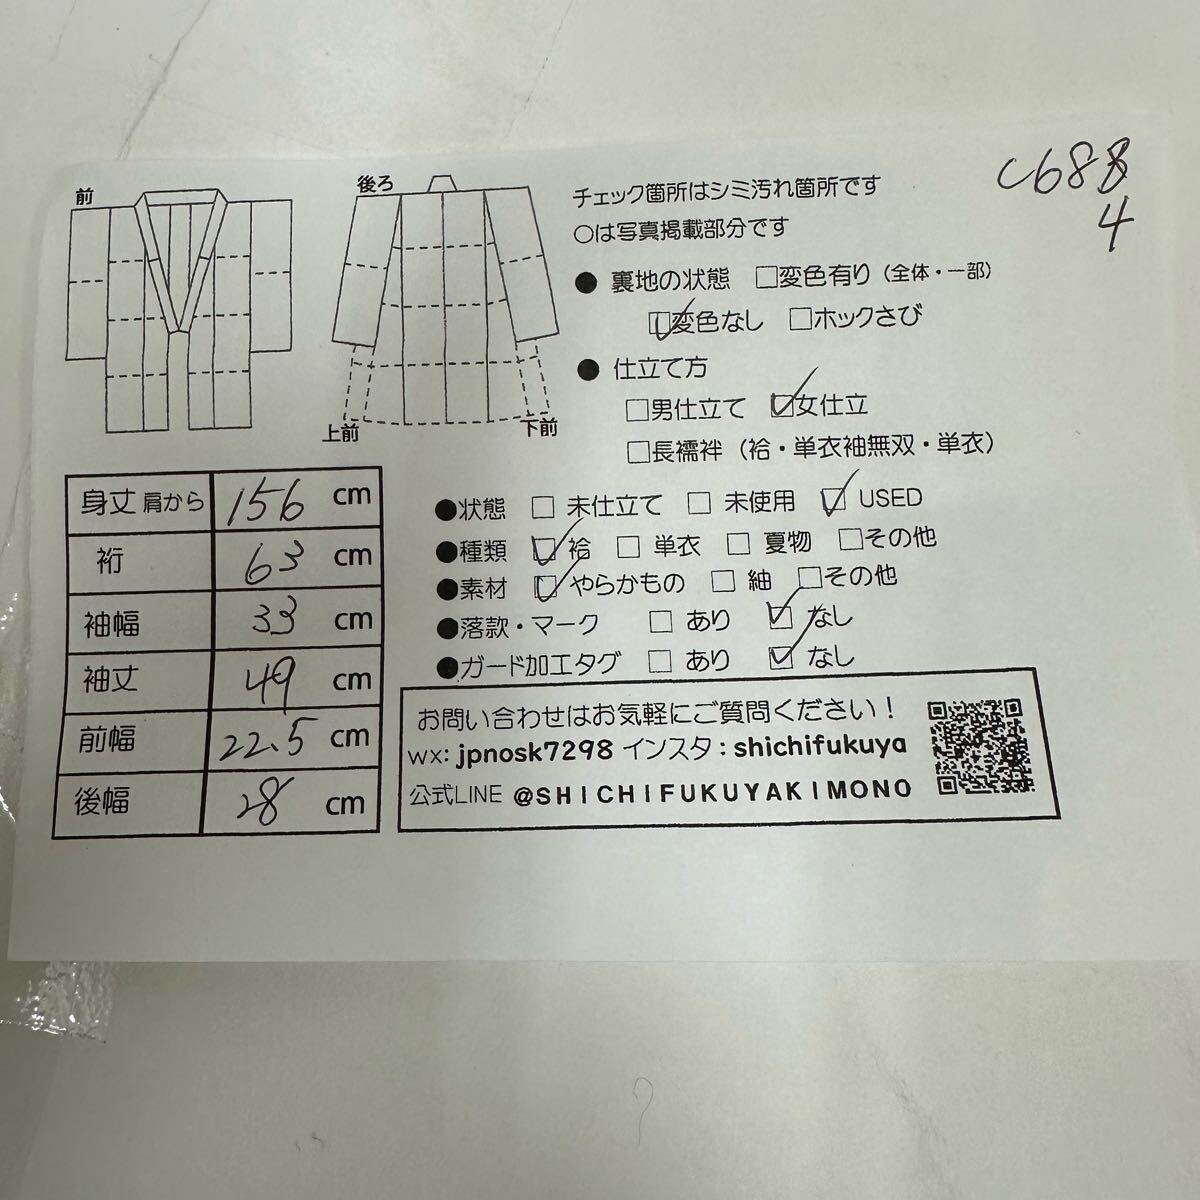 C688
4
前
後ろ
上前
下前
チェック箇所はシミ汚れ箇所です
○は写真掲載部分です
● 裏地の状態 □変色有り（全体・一部）
☑変色なし □ホックさび
● 仕立て方
□男仕立て ☑女仕立
□長襦袢（袷・単衣袖無双・単衣）
身丈 肩から 156 cm
裄 63 cm
袖幅 33 cm
袖丈 49 cm
前幅 22.5 cm
後幅 28 cm
●状態 □ 未仕立て □ 未使用 ☑ USED
●種類 ☑ 袷 □ 単衣 □ 夏物 □その他
●素材 ☑ やらかもの □ 紬 □その他
●落款・マーク □ あり ☑ なし
●ガード加工タグ □ あり ☑ なし
お問い合わせはお気軽にご質問ください！
wx: jpnosk7298 インスタ：shichifukuya
公式LINE @SHICHIFUKUYAKIMONO